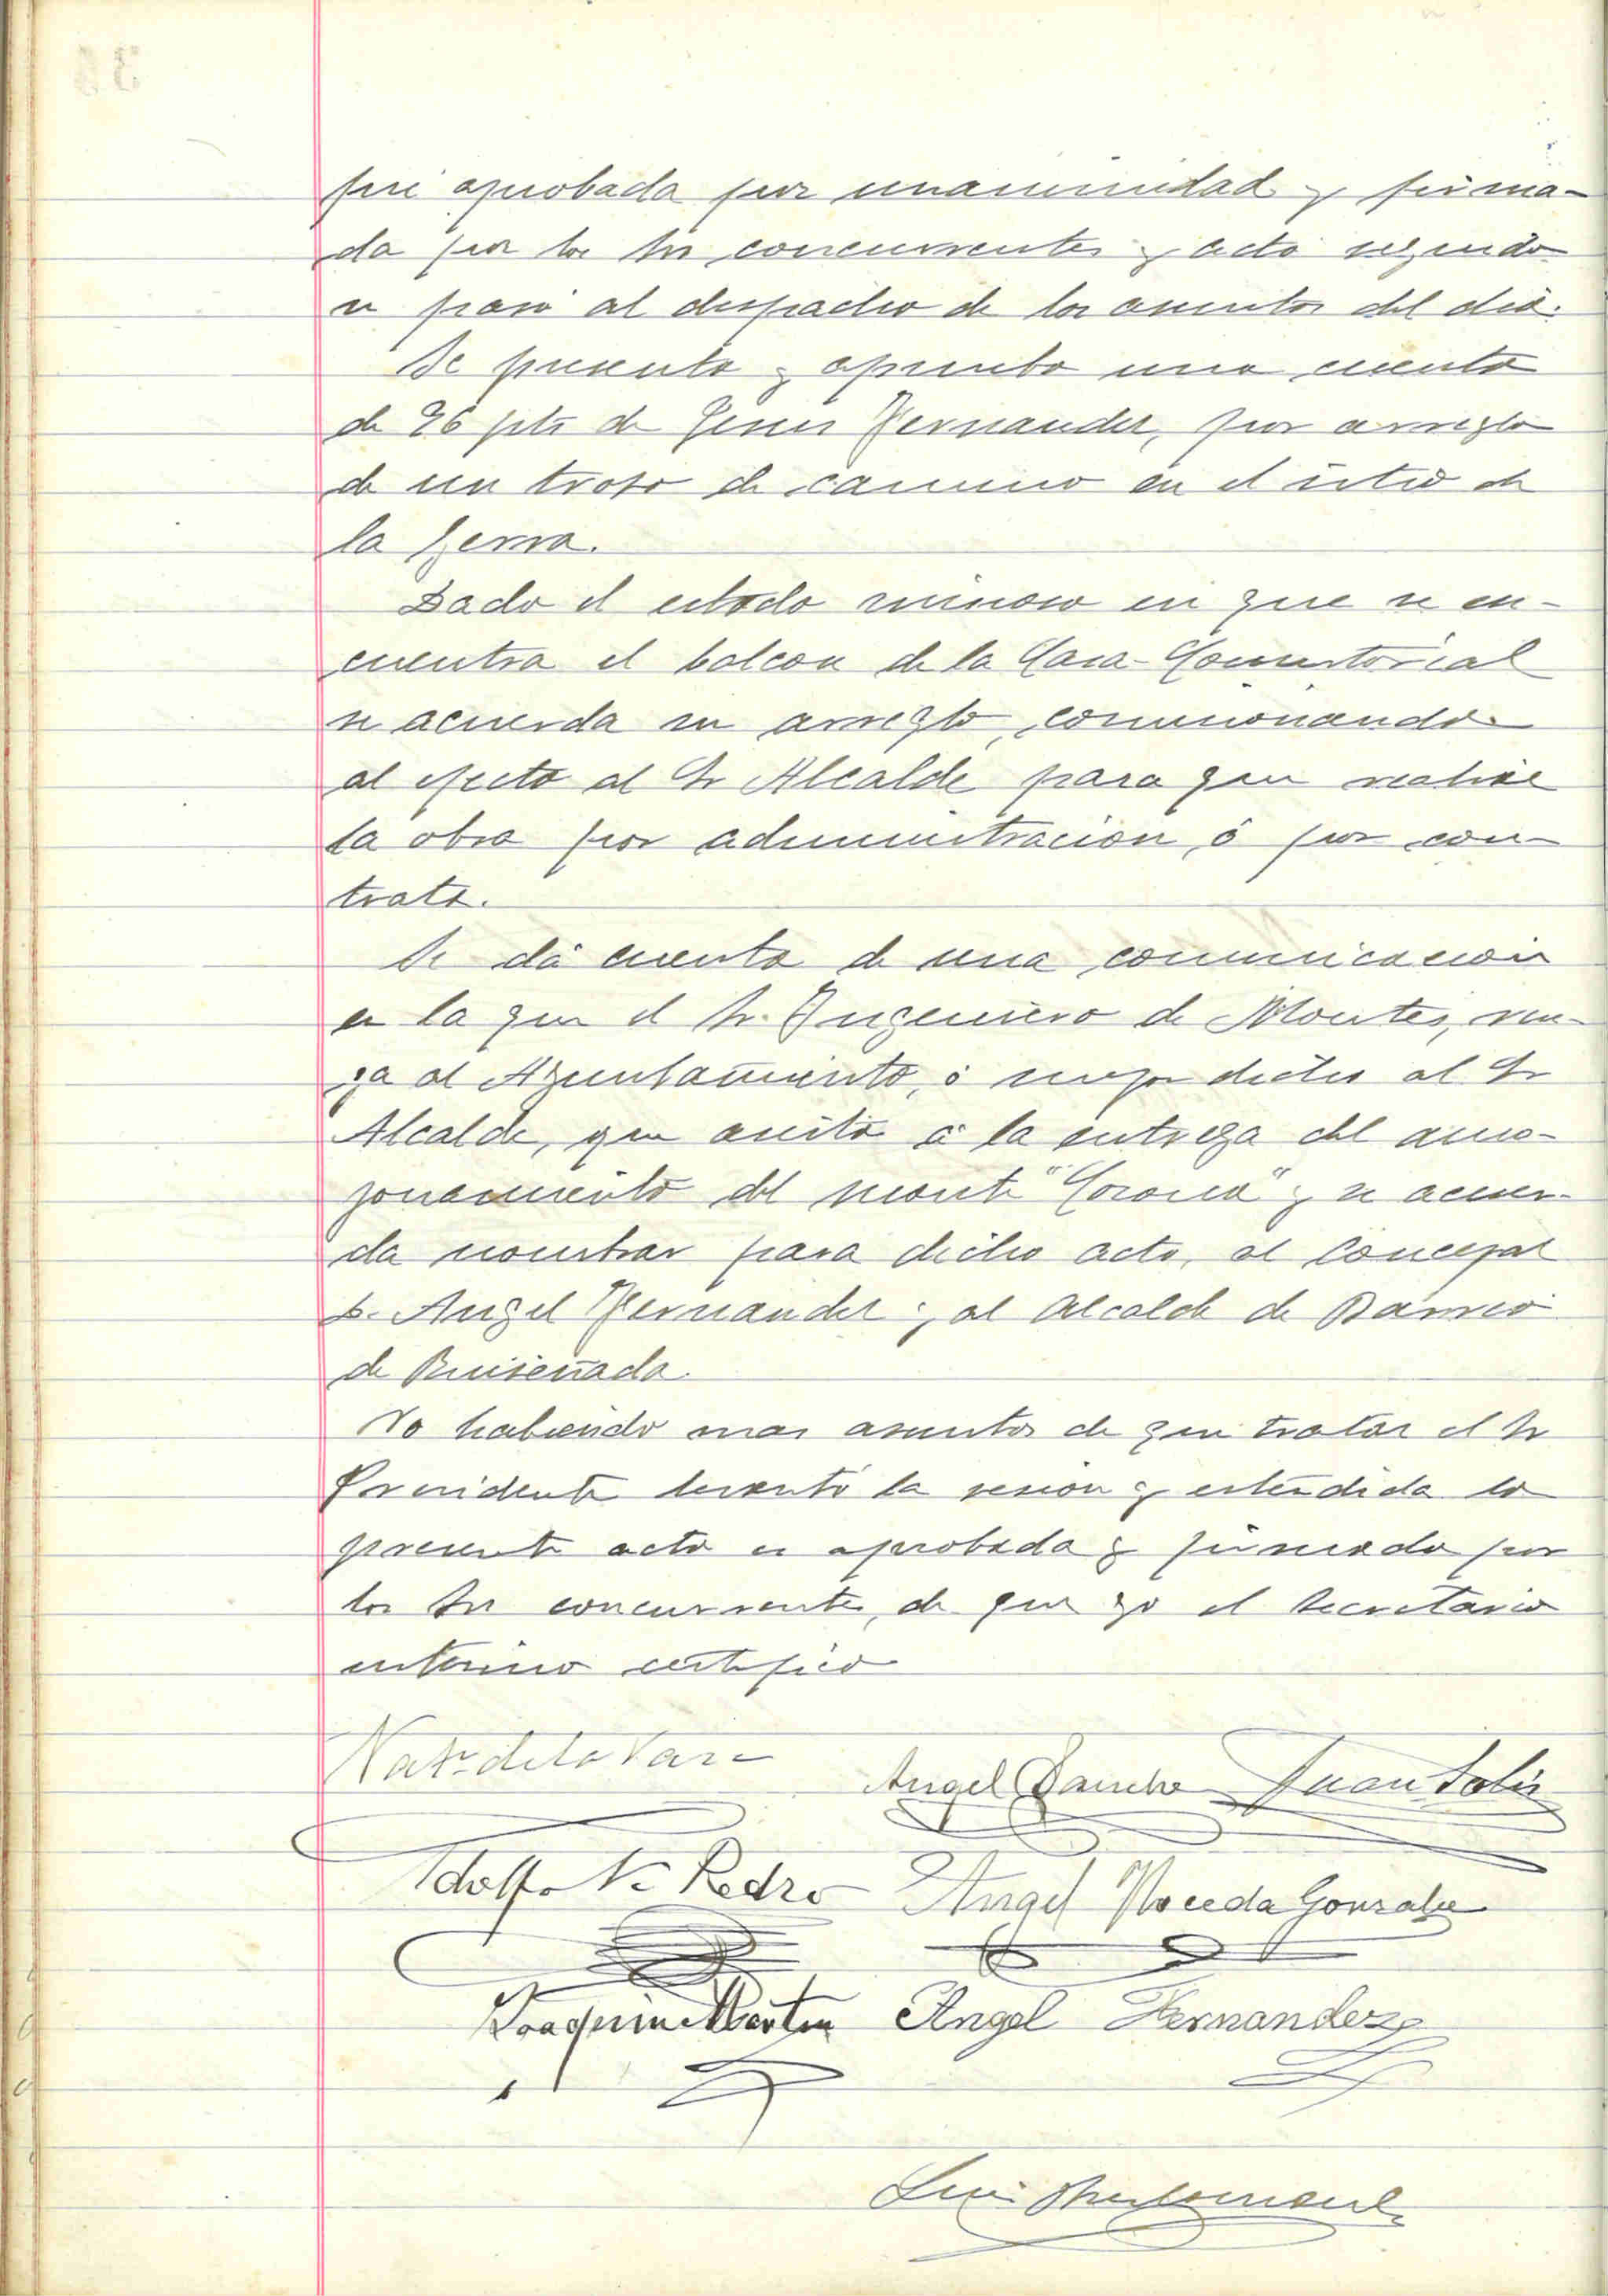 fué aprobada por unanimidad y firma-
da por los Sres concurrentes y acto seguido
se pasó al despacho de los asuntos del dia.
Se presenta y aprueba una cuenta
de 26 pts de Jesus Hernandez, por arreglo
de un troso de camino en el sitio de
la Jerra.
Dado el estado ruinoso en que se en-
cuentra el balcon de la Casa-Consistorial
se acuerda su arreglo, comisionando
al efecto al Sr Alcalde para que realice
la obra por administracion, ó por con-
trata.
Se dá cuenta de una comunicacion
en la que el Sr. Ingeniero de Montes, rue-
ga al Ayuntamiento, ó mejor dicho al Sr
Alcalde, que asista á la entrega del amo-
jonamiento del monte "Corona" y se acuer-
da nombrar para dicho acto, al Concejal
D. Angel Hernandez y al Alcalde de Barrio
de Ruiseñada.
No habiendo mas asuntos de que tratar el Sr
Presidente levantó la sesion y extendida la
presente acta es aprobada y firmada por
los Sres concurrentes, de que yo el Secretario
interino certifico
Angel Sancho Juan Solis
Adolfo Pedro Angel Noceda Gonzalez
Joaquin Martin Angel Hernandez
Luis